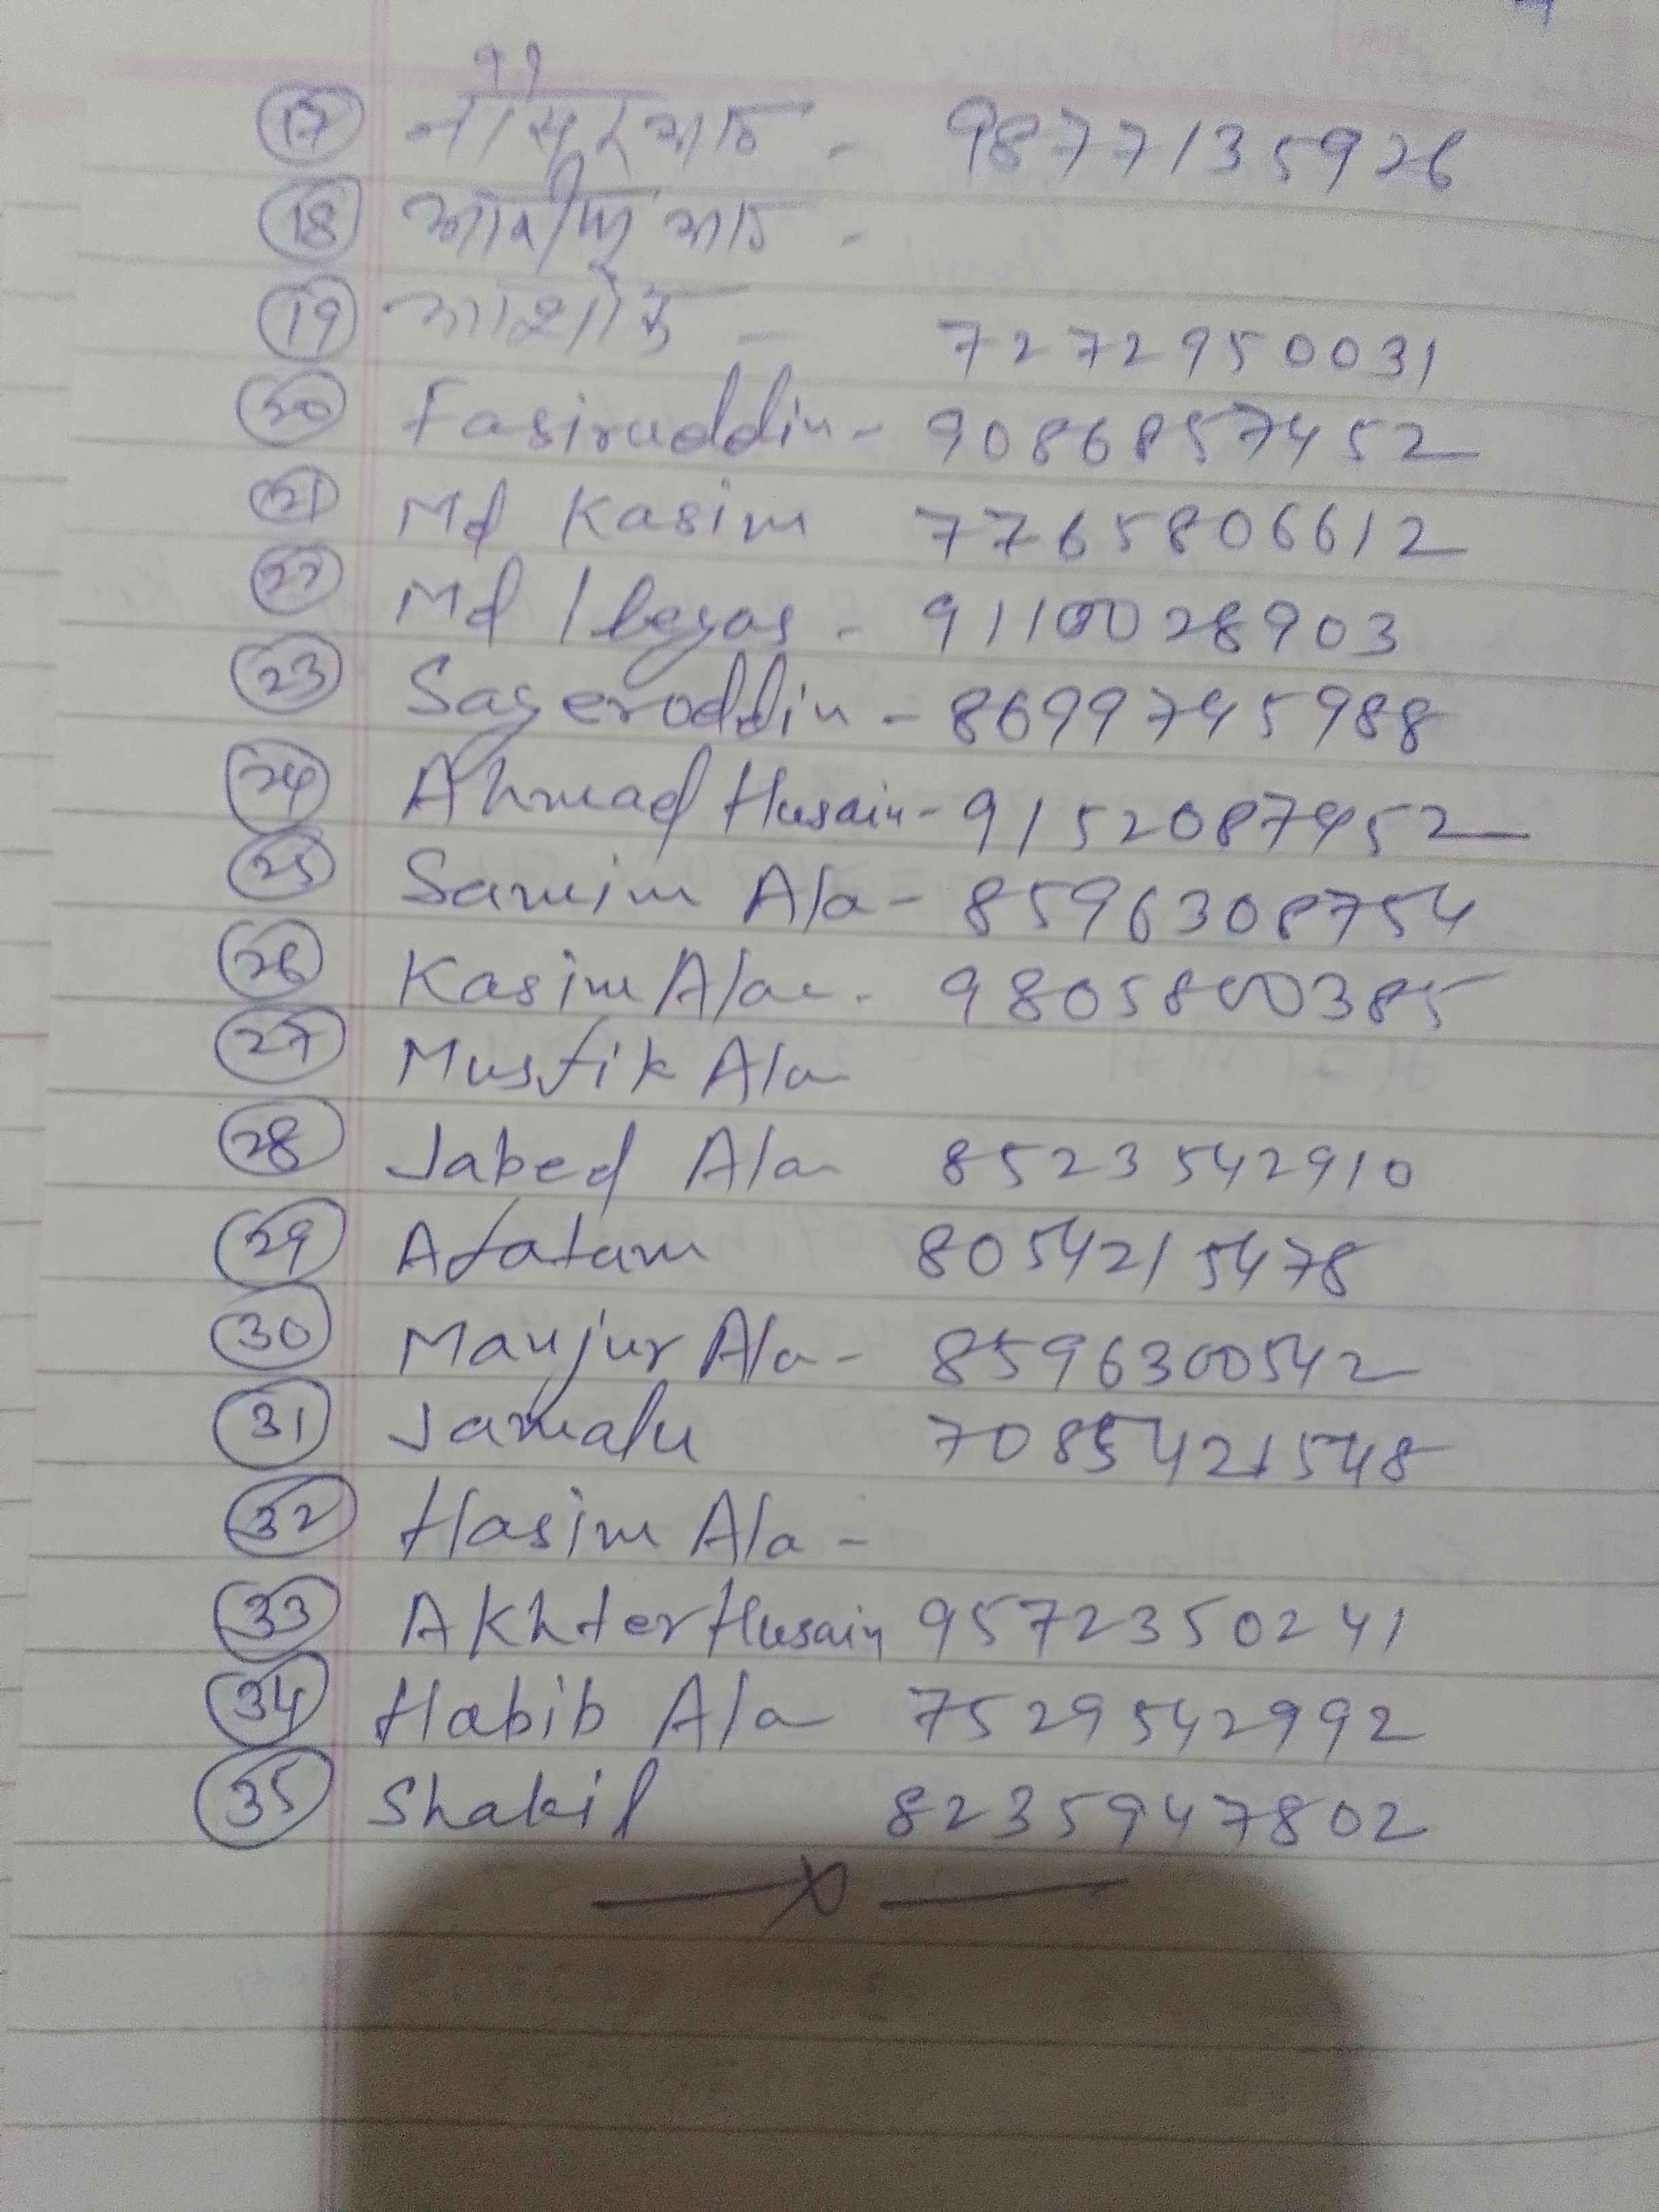 99
17 - 9877135926
18 -
19 - 7272950031
20 Fasiruddin - 9086857452
21 Md Kasim 7765806612
22 Md Ileyas - 9110028903
23 Sageroddin - 8699745988
24 Ahmad Husain - 9152087452
25 Samim Ala - 8596308754
26 Kasim Ala - 9805800385
27 Musfik Ala
28 Jabed Ala 8523542910
29 Afatam 8054215478
30 Manjur Ala - 8596300542
31 Jamalu 7085421548
32 Hasim Ala -
33 Akhter Husain 9572350241
34 Habib Ala 7529542992
35 Shakil 8235947802